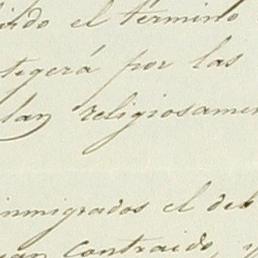 ido el término
tegerá por las
lan religiosamen
inmigrados el deb
yan contraido, y